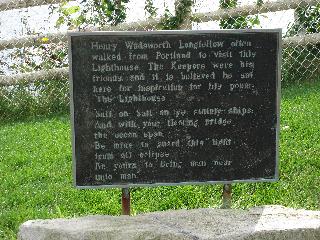 Henry Wadsworth Longfellow often
walked from Portland to visit this
Lighthouse. The Keepers were his
friends and it is believed he sat
here for inspiration for his poem,
The Lighthouse
Sail on, Sail on ye stately ships;
And with your floating bridge
the ocean span.
Be mine to guard this light
from all eclipse.
Be yours to bring man near
unto man.